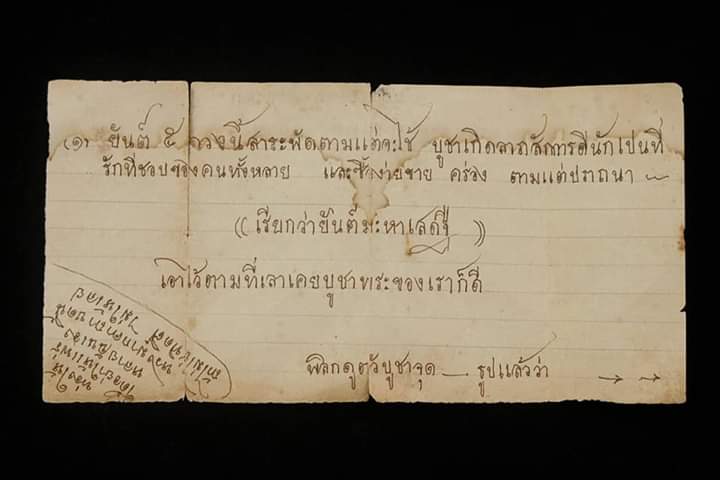 (๑) ยันต์ ๕ ดวงนี้สาระพัดตามแต่จะใช้ บูชาเกิดลาภสักการดีนักเปนที่
รักที่ชอบของคนทั้งหลาย และซื้อง่ายขาย คร่อง ตามแต่ปราถนา
(( เรียกว่ายันต์มะหาเสดถี ))
เอาไว้ตามที่เลาเคยบูชาพระของเราก็ดี
พลิกดูตัวบูชาจุด — ธูปแล้วว่า → →